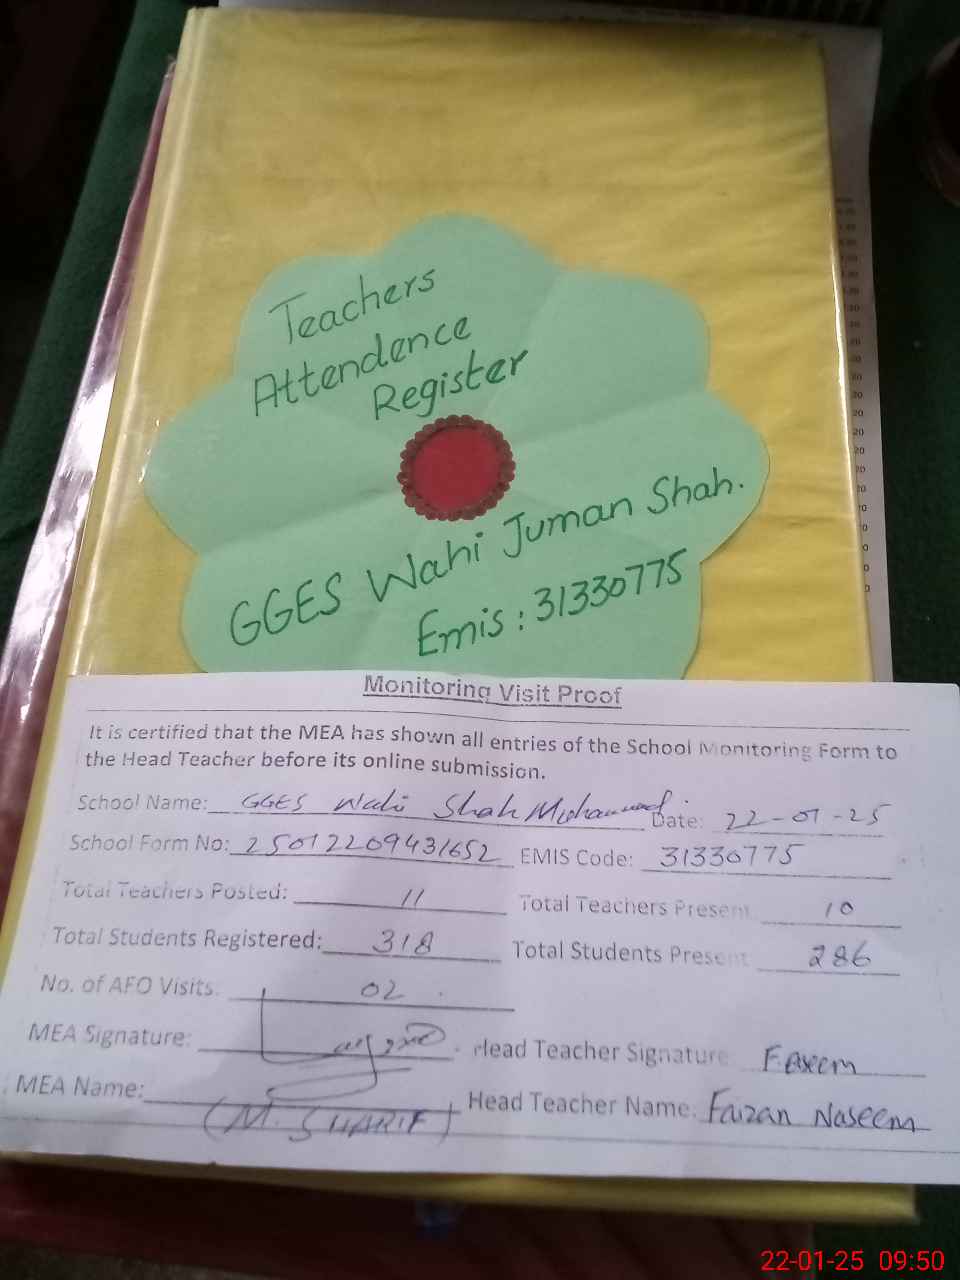 Teachers
Attendence
Register
GGES Wahi Juman Shah.
Emis : 31330775
Monitoring Visit Proof
It is certified that the MEA has shown all entries of the School Monitoring Form to
the Head Teacher before its online submission.
School Name: GGES Wahi Shah Muhammad Date: 22-01-25
School Form No: 25012209431652 EMIS Code: 31330775
Total Teachers Posted: 11 Total Teachers Present 10
Total Students Registered: 318 Total Students Present 286
No. of AFO Visits. 02
MEA Signature: Head Teacher Signature
MEA Name: (M. SHARIF) Head Teacher Name. Faizan Naseem
22-01-25 09:50